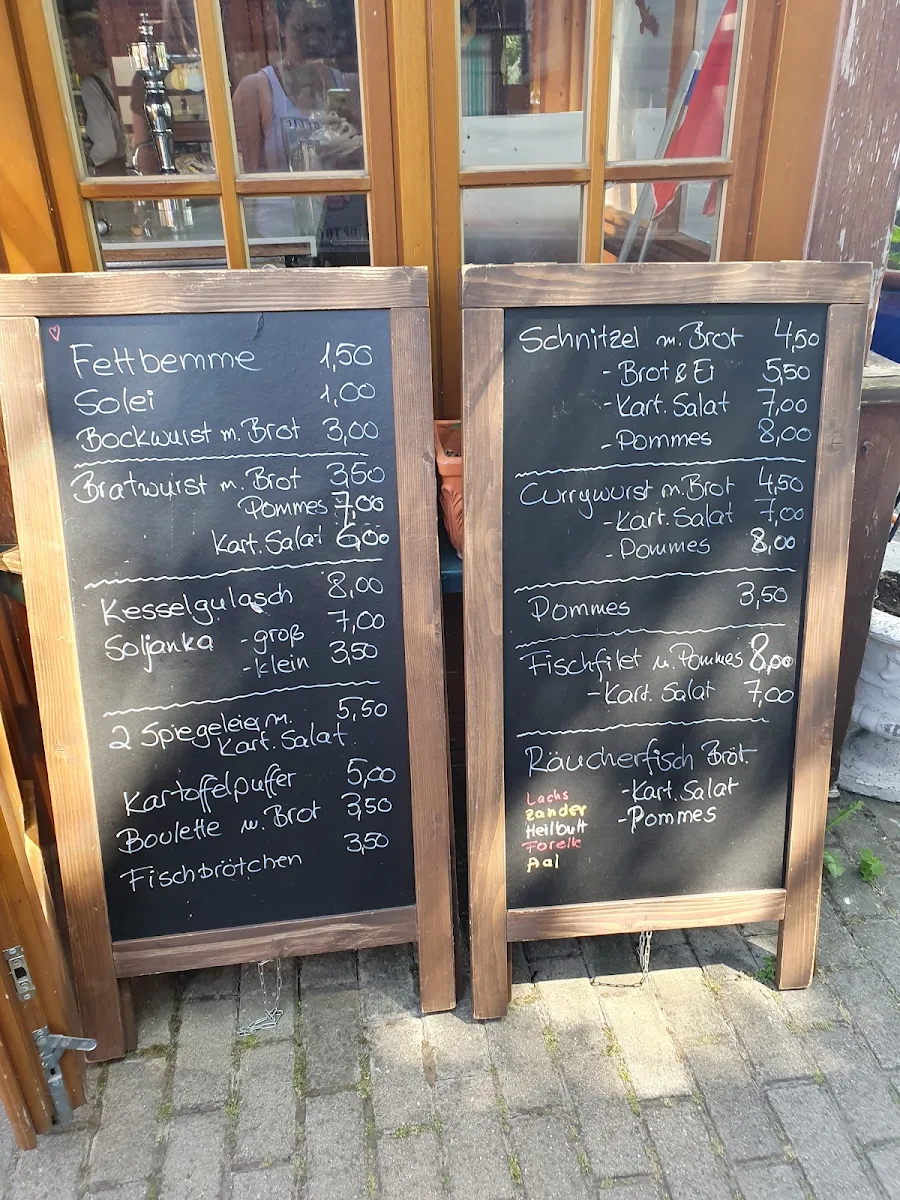 Fettbemme 1,50
Solei 1,00
Bockwurst m. Brot 3,00
Bratwurst m. Brot 3,50
Pommes 7,00
Kart. Salat 6,00
Kesselgulasch 8,00
Soljanka - groß 7,00
- klein 3,50
2 Spiegeleier m. 5,50
Kart. Salat
Kartoffelpuffer 5,00
Boulette m. Brot 3,50
Fischbrötchen 3,50
Schnitzel m. Brot 4,50
- Brot & Ei 5,50
- Kart. Salat 7,00
- Pommes 8,00
Currywurst m. Brot 4,50
- Kart. Salat 7,00
- Pommes 8,00
Pommes 3,50
Fischfilet m. Pommes 8,00
- Kart. Salat 7,00
Räucherfisch Bröt.
- Kart. Salat
- Pommes
Lachs
Zander
Heilbutt
Forelle
Aal